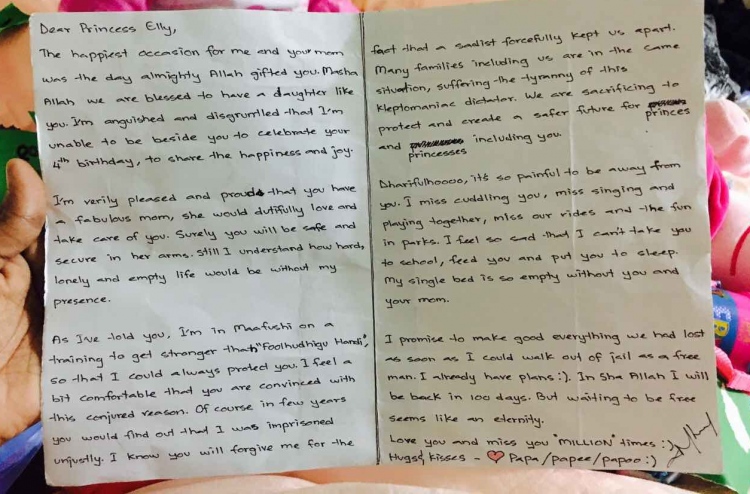 Dear Princess Elly,
The happiest occasion for me and your mom
was the day almighty Allah gifted you. Masha
Allah we are blessed to have a daughter like
you. I'm anguished and disgruntled that I'm
unable to be beside you to celebrate your
4th birthday, to share the happiness and joy.
I'm verily pleased and proud that you have
a fabulous mom, she would dutifully love and
take care of you. Surely you will be safe and
secure in her arms. Still I understand how hard,
lonely and empty life would be without my
presence.
As I've told you, I'm in Maafushi on a
training to get stronger than "Foolhudhigu Handi",
so that I could always protect you. I feel a
bit comfortable that you are convinced with
this conjured reason. Of course in few years
you would find out that I was imprisoned
unjustly. I know you will forgive me for the
fact that a sadist forcefully kept us apart.
Many families including us are in the same
situation, suffering the tyranny of this
kleptomaniac dictator. We are sacrificing to
protect and create a safer future for princes
and princesses including you.
Dharifulhoooo, it's so painful to be away from
you. I miss cuddling you, miss singing and
playing together, miss our rides and the fun
in parks. I feel so sad that I can't take you
to school, feed you and put you to sleep.
My single bed is so empty without you and
your mom.
I promise to make good everything we had lost
as soon as I could walk out of jail as a free
man. I already have plans :). In Sha Allah I will
be back in 100 days. But waiting to be free
seems like an eternity.
Love you and miss you "MILLION" times :)
Hugs & kisses - ♡ Papa/papee/papoo :)